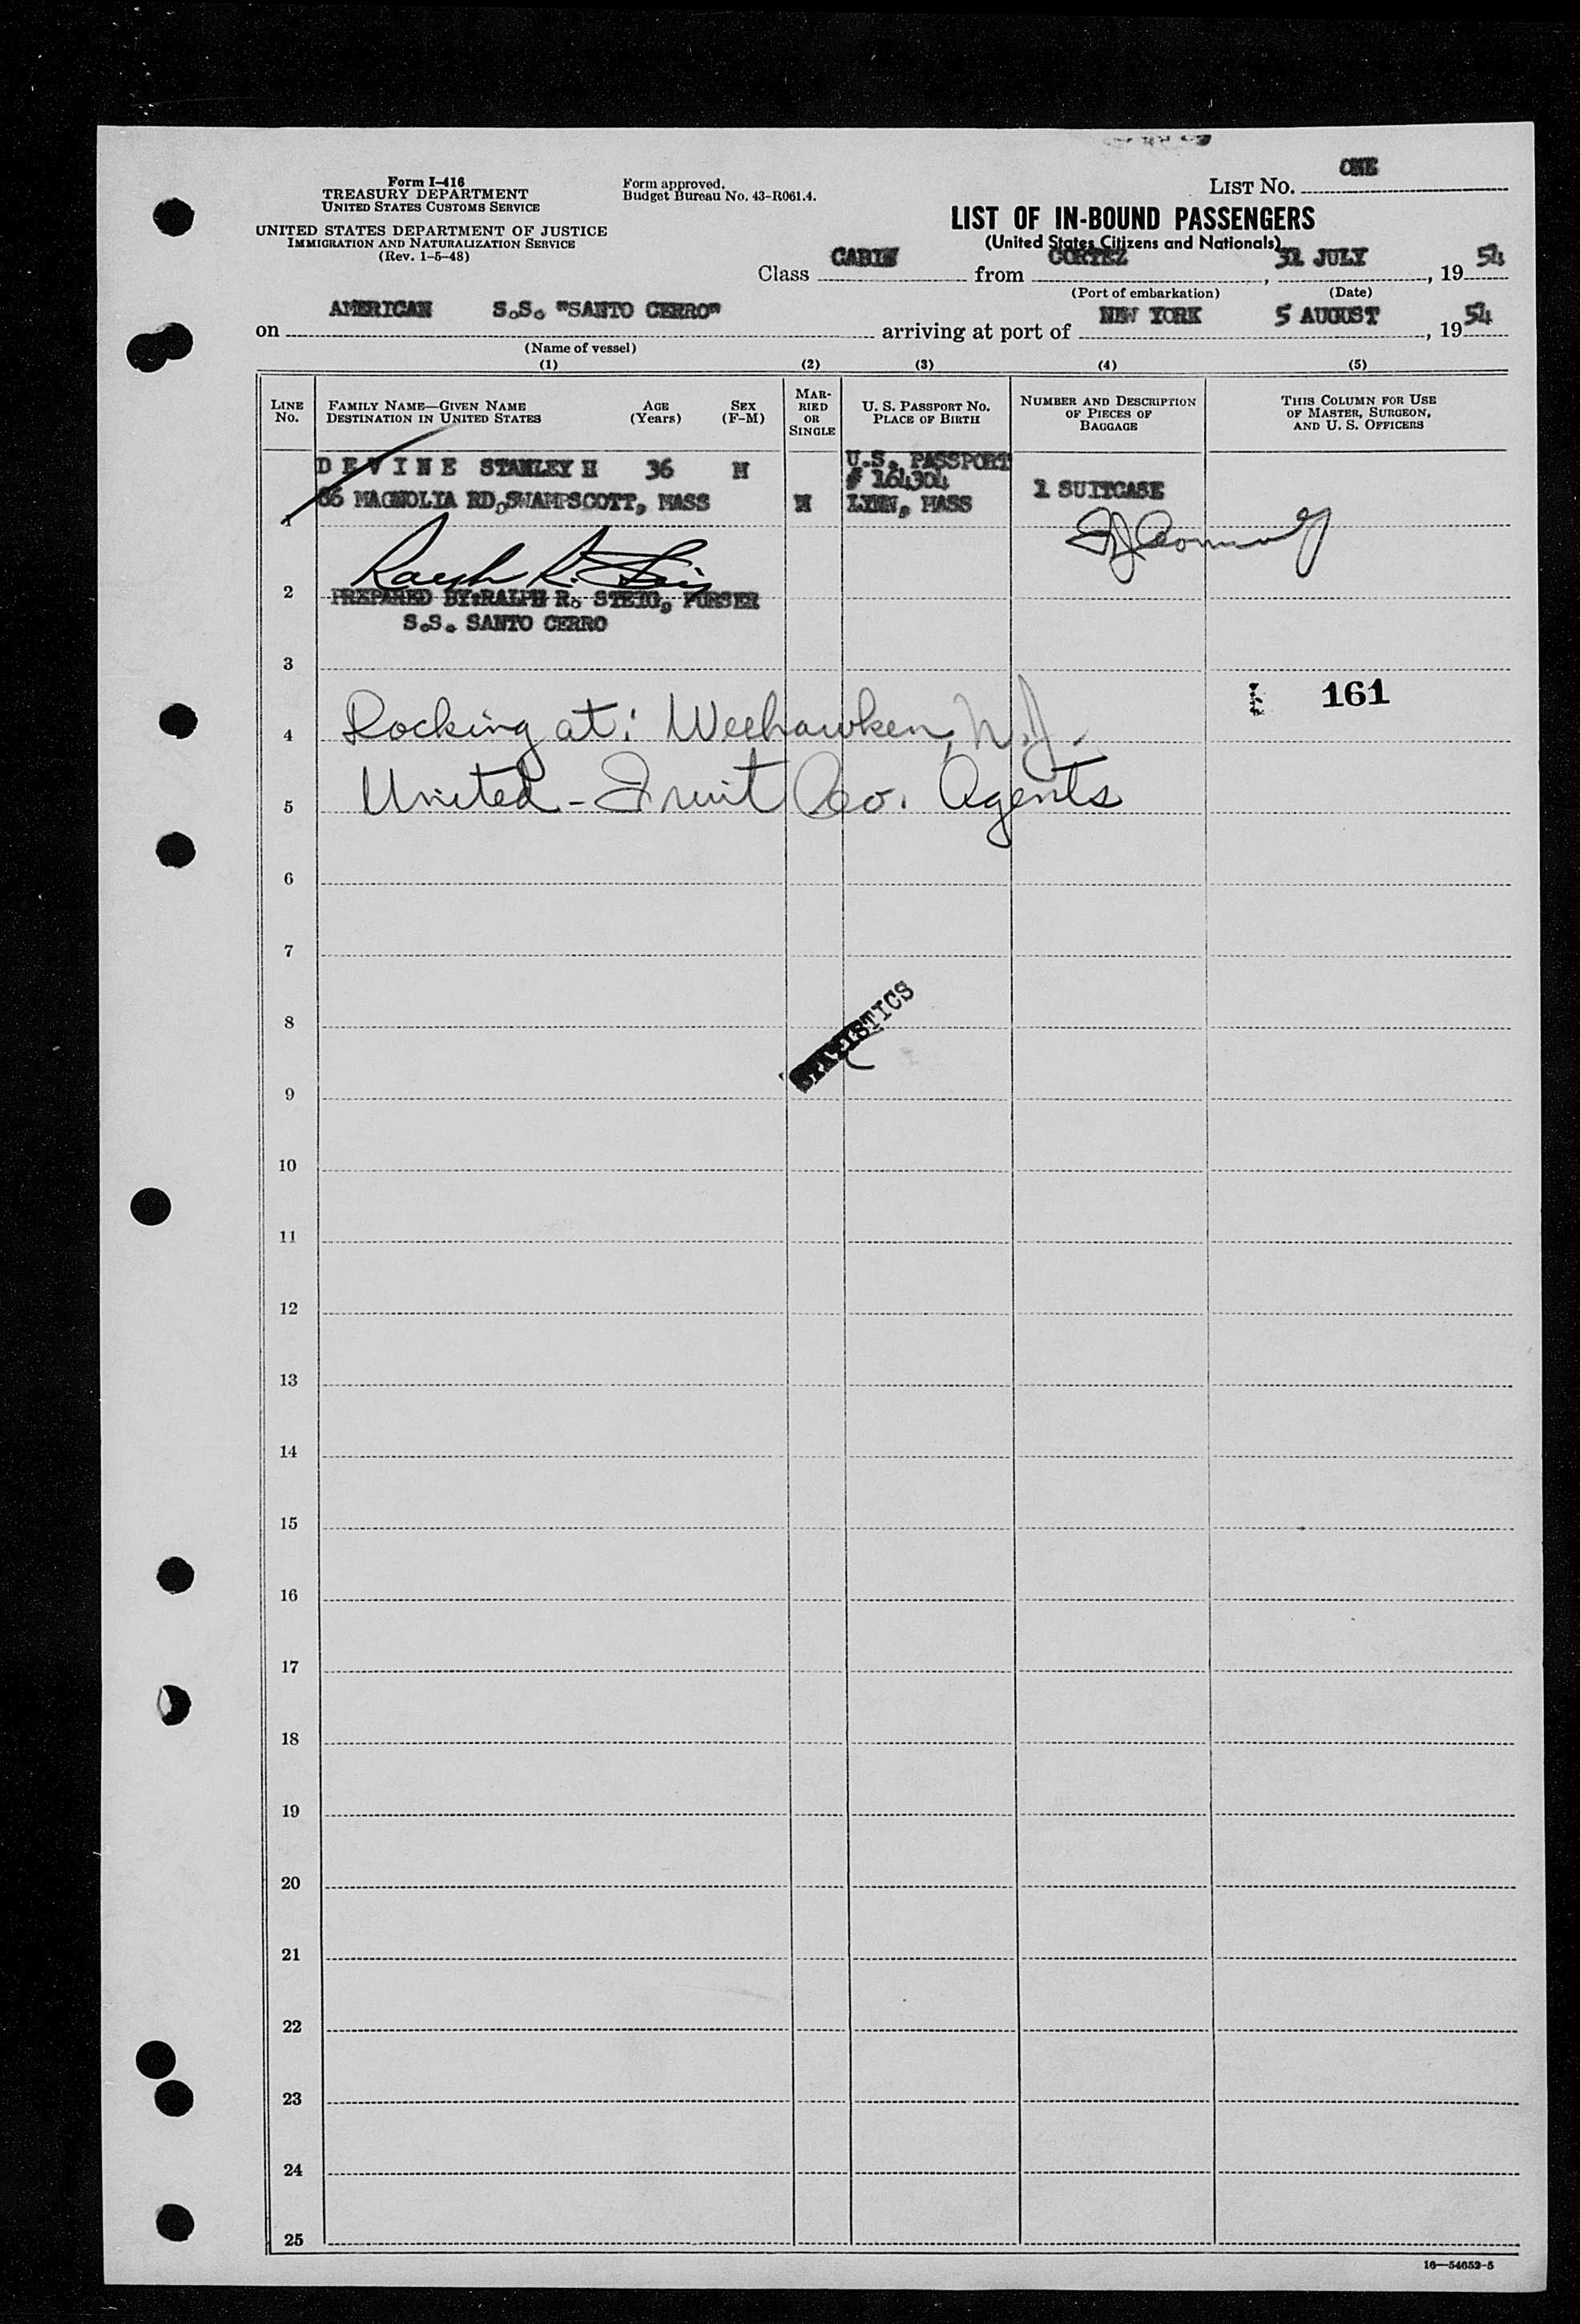 Form I-416
TREASURY DEPARTMENT
UNITED STATES CUSTOMS SERVICE
UNITED STATES DEPARTMENT OF JUSTICE
IMMIGRATION AND NATURALIZATION SERVICE
(Rev. 1-5-48)
Form approved.
Budget Bureau No. 43-R061.4.
LIST NO. ONE
LIST OF IN-BOUND PASSENGERS
(United States Citizens and Nationals)
Class CABIN from CORTEZ, 31 JULY, 1954
(Port of embarkation) (Date)
on AMERICAN S.S. "SANTO CERRO" arriving at port of NEW YORK 5 AUGUST, 1954
(Name of vessel)
(1) (2) (3) (4) (5)
LINE NO.
FAMILY NAME—GIVEN NAME AGE SEX
DESTINATION IN UNITED STATES (Years) (F-M)
MAR-
RIED
OR
SINGLE
U. S. PASSPORT NO.
PLACE OF BIRTH
NUMBER AND DESCRIPTION
OF PIECES OF
BAGGAGE
THIS COLUMN FOR USE
OF MASTER, SURGEON,
AND U. S. OFFICERS
DEVINE STANLEY H 36 M U.S. PASSPORT
# 164304
86 MAGNOLIA RD, SWAMPSCOTT, MASS M LYNN, MASS 1 SUITCASE
1
Ralph R.
2 PREPARED BY: RALPH R. STEIG, PURSER
S.S. SANTO CERRO
3
161
4 Docking at: Weehawken, N.J.
5 United-Fruit Co. Agents
6
7
8
STATISTICS
9
10
11
12
13
14
15
16
17
18
19
20
21
22
23
24
25
16—54652-5